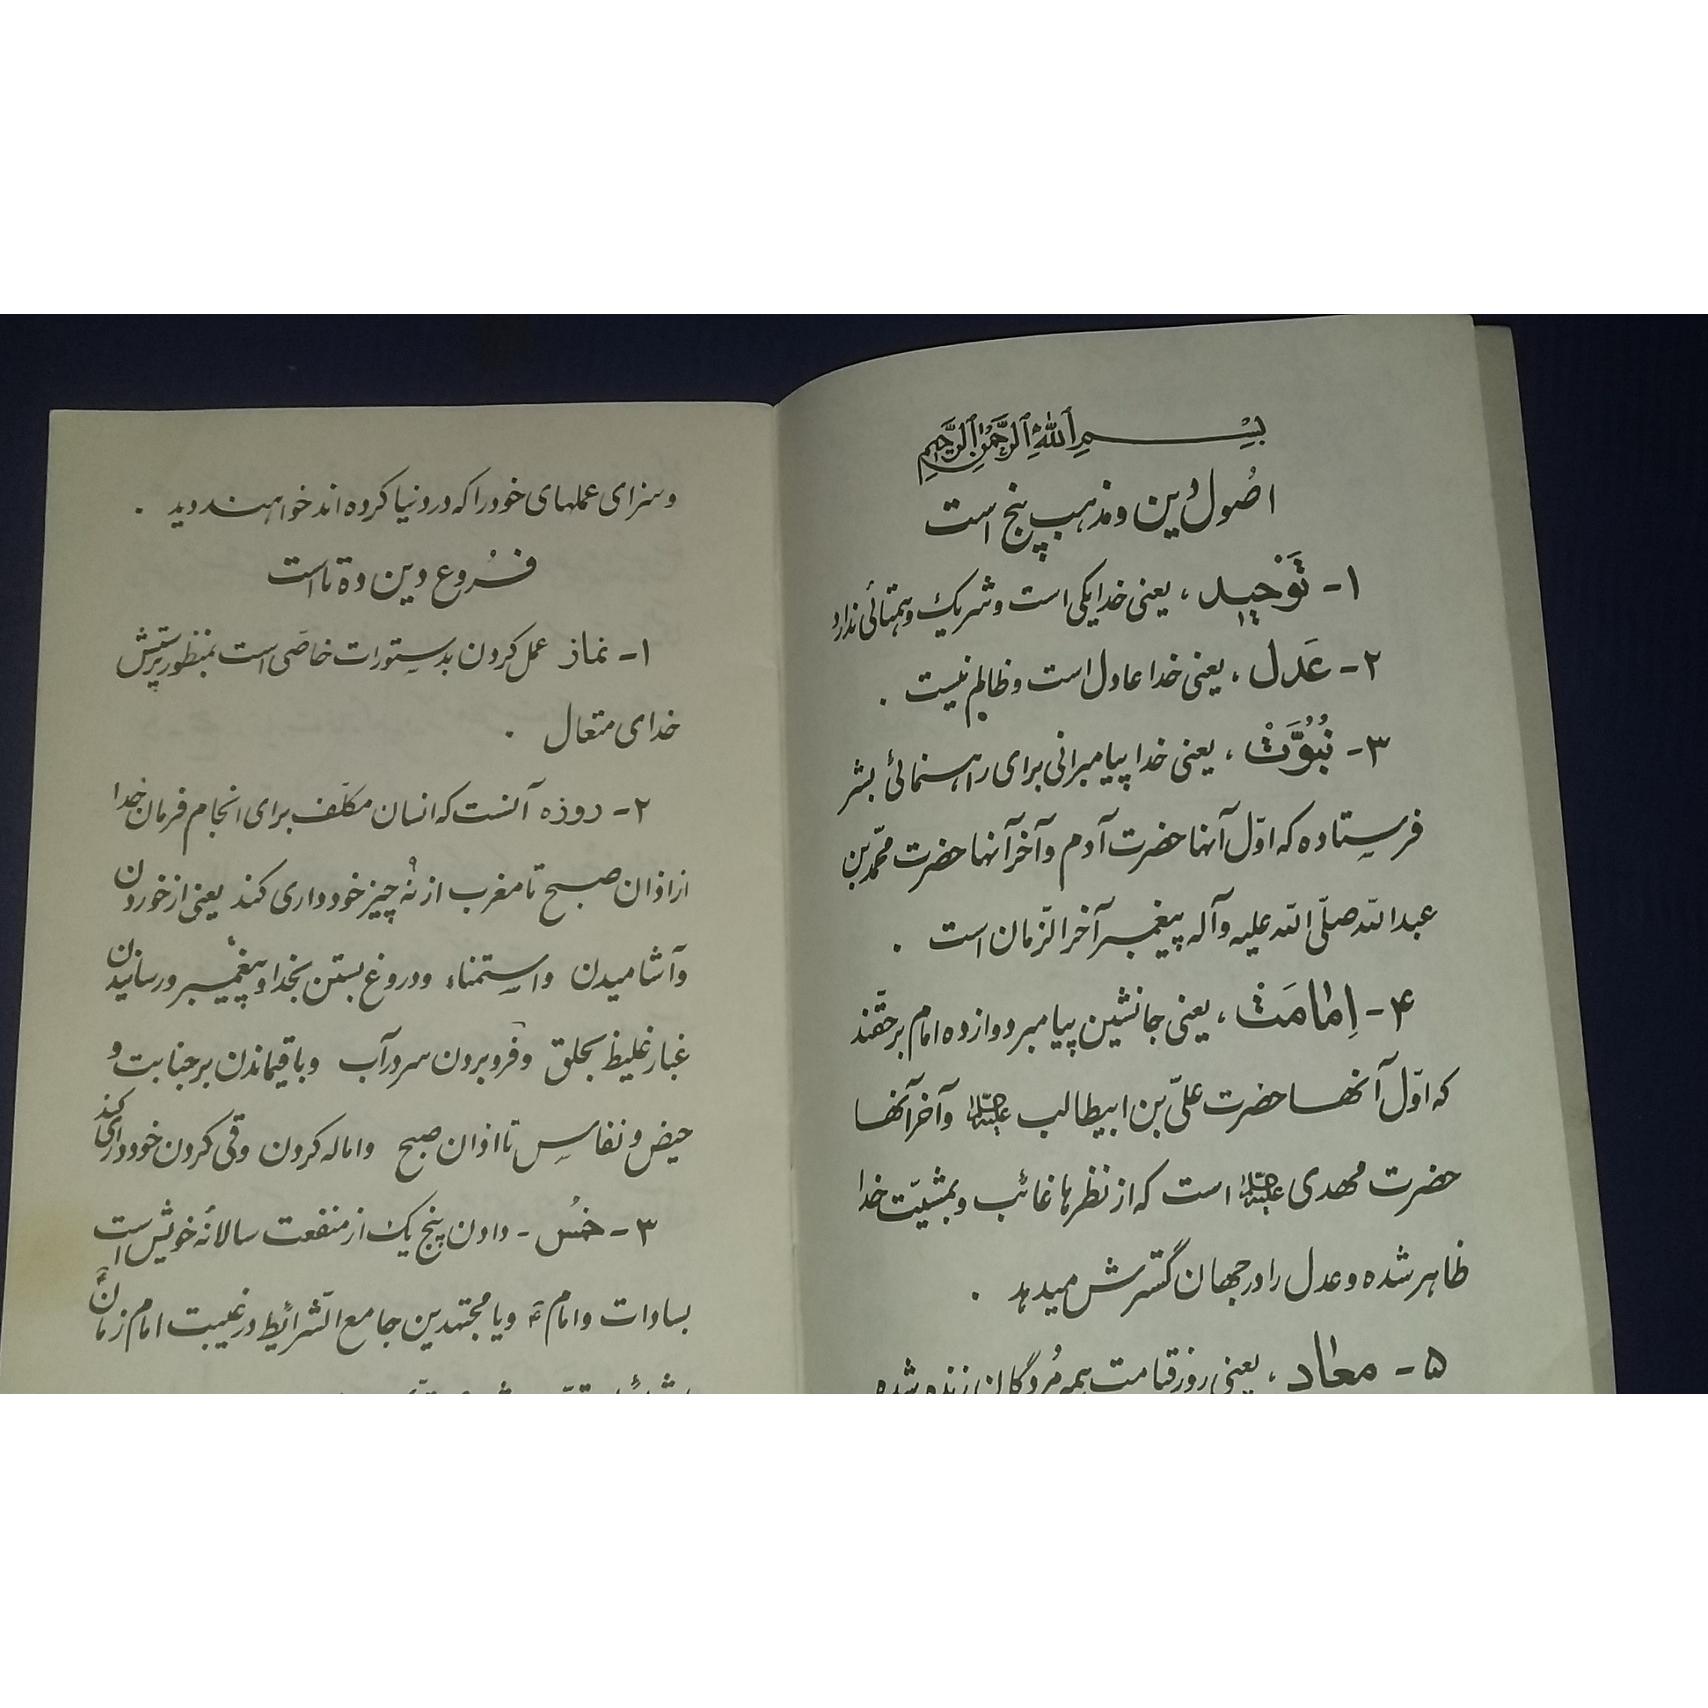 بِسْمِ ٱللّٰهِ ٱلرَّحْمٰنِ ٱلرَّحِيمِ
اصُول دین و مذهب پنج است
۱- تَوْحید ، یعنی خدا یکی است و شریک و همتائی ندارد
۲- عَدل ، یعنی خدا عادل است و ظالم نیست .
۳- نُبُوَّتْ ، یعنی خدا پیامبرانی برای راهنمائی بشر
فرستاده که اوّل آنها حضرت آدم و آخر آنها حضرت محمّد بن
عبداللّه صلّی اللّه علیه و آله پیغمبر آخر الزّمان است .
۴- اِمامَتْ ، یعنی جانشین پیامبر دوازده امام بر حقّند
که اوّل آنها حضرت علیّ بن ابیطالب علیه‌السلام و آخر آنها
حضرت مهدی علیه‌السلام است که از نظرها غائب و بمشیّت خدا
ظاهر شده و عدل را در جهان گسترش میدهد .
۵- معاد ، یعنی روز قیامت همه مُردگان زنده شده
و سزای عملهای خود را که در دنیا کرده اند خواهند دید .
فُروع دین ده تا است
۱- نماز عمل کردن بدستورات خاصّی است بمنظور پرستش
خدای متعال .
۲- روزه آنست که انسان مکلّف برای انجام فرمان خدا
از اذان صبح تا مغرب از نُه چیز خودداری کند یعنی از خوردن
و آشامیدن و استمناء و دروغ بستن بخدا و پیغمبر و رسانیدن
غبار غلیظ بحلق و فرو بردن سر در آب و باقیماندن بر جنابت و
حیض و نفاس تا اذان صبح و اماله کردن و قی کردن خودداری کند
۳- خمُس - دادن پنج یک از منفعت سالانهٔ خویش است
بسادات و امام ع و یا مجتهدین جامع الشّرائط در غیبت امام زمان ع